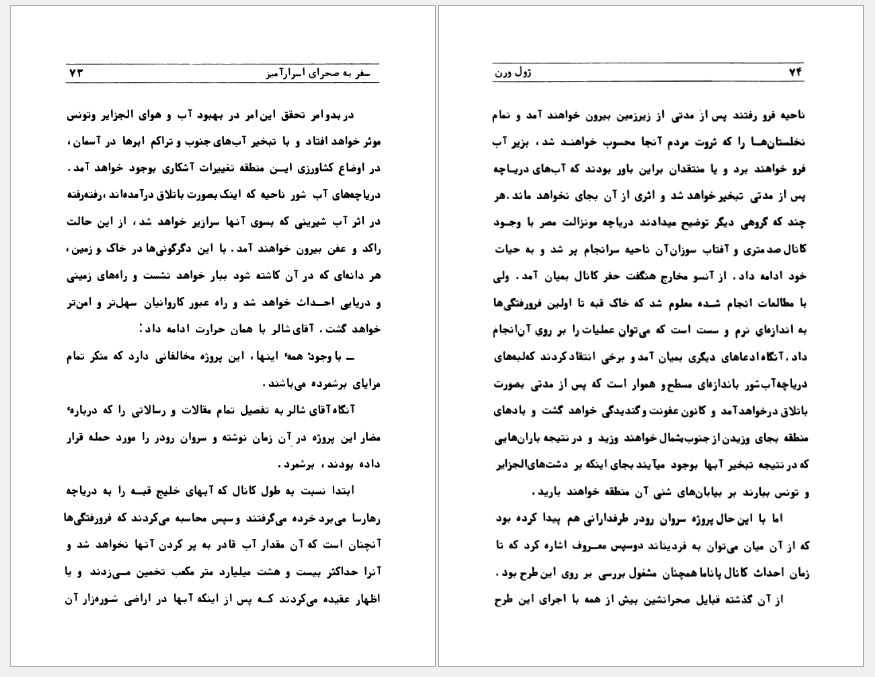 سفر به صحرای اسرارآمیز ۷۳
در بدو امر تحقق این امر در بهبود آب و هوای الجزایر وتونس
موثر خواهد افتاد و با تبخیر آب‌های جنوب و تراکم ابرها در آسمان،
در اوضاع کشاورزی این منطقه تغییرات آشکاری بوجود خواهد آمد.
دریاچه‌های آب شور ناحیه که اینک بصورت باتلاق درآمده‌اند، رفته‌رفته
در اثر آب شیرینی که بسوی آنها سرازیر خواهد شد، از این حالت
راکد و عفن بیرون خواهند آمد. با این دگرگونی‌ها در خاک و زمین،
هر دانه‌ای که در آن کاشته شود ببار خواهد نشست و راه‌های زمینی
و دریایی احداث خواهد شد و راه عبور کاروانیان سهل‌تر و امن‌تر
خواهد گشت. آقای شالر با همان حرارت ادامه داد:
ــ با وجود همهٔ اینها، این پروژه مخالفانی دارد که منکر تمام
مزایای برشمرده می‌باشند.
آنگاه آقای شالر به تفصیل تمام مقالات و رسالاتی را که دربارهٔ
مضار این پروژه در آن زمان نوشته و سروان رودر را مورد حمله قرار
داده بودند، برشمرد.
ابتدا نسبت به طول کانال که آبهای خلیج قبه را به دریاچه
رهارسا می‌برد خرده می‌گرفتند و سپس محاسبه می‌کردند که فرورفتگی‌ها
آنچنان است که آن مقدار آب قادر به پر کردن آنها نخواهد شد و
آنرا حداکثر بیست و هشت میلیارد متر مکعب تخمین می‌زدند و یا
اظهار عقیده می‌کردند که پس از اینکه آبها در اراضی شوره‌زار آن
۷۴ ژول ورن
ناحیه فرو رفتند پس از مدتی از زیرزمین بیرون خواهند آمد و تمام
نخلستان‌ها را که ثروت مردم آنجا محسوب خواهند شد، بزیر آب
فرو خواهند برد و یا منتقدان براین باور بودند که آب‌های دریاچه
پس از مدتی تبخیر خواهد شد و اثری از آن بجای نخواهد ماند. هر
چند که گروهی دیگر توضیح میدادند دریاچه مونزالت مصر با وجود
کانال صد متری و آفتاب سوزان آن ناحیه سرانجام پر شد و به حیات
خود ادامه داد. از آنسو مخارج هنگفت حفر کانال بمیان آمد. ولی
با مطالعات انجام شده معلوم شد که خاک قبه تا اولین فرورفتگی‌ها
به اندازه‌ای نرم و سست است که می‌توان عملیات را بر روی آن انجام
داد. آنگاه ادعاهای دیگری بمیان آمد و برخی انتقاد کردند که لبه‌های
دریاچه آب شور باندازه‌ای مسطح و هموار است که پس از مدتی بصورت
باتلاق در خواهد آمد و کانون عفونت و گندیدگی خواهد گشت و بادهای
منطقه بجای وزیدن از جنوب بشمال خواهند وزید و در نتیجه باران‌هایی
که در نتیجه تبخیر آبها بوجود میآیند بجای اینکه بر دشت‌های الجزایر
و تونس ببارند بر بیابان‌های شنی آن منطقه خواهند بارید.
اما با این حال پروژه سروان رودر طرفدارانی هم پیدا کرده بود
که از آن میان می‌توان به فردیناند دوسپس معروف اشاره کرد که تا
زمان احداث کانال پاناما همچنان مشغول بررسی بر روی این طرح بود.
از آن گذشته قبایل صحرانشین بیش از همه با اجرای این طرح